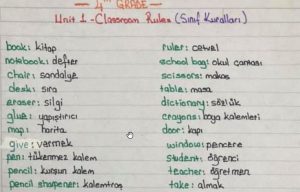 4th GRADE
Unit 1 - Classroom Rules (Sınıf Kuralları)
book: kitap
notebook: defter
chair: sandalye
desk: sıra
eraser: silgi
glue: yapıştırıcı
map: harita
give: vermek
pen: tükenmez kalem
pencil: kurşun kalem
pencil sharpener: kalemtraş
ruler: cetvel
school bag: okul çantası
scissors: makas
table: masa
dictionary: sözlük
crayons: boya kalemleri
door: kapı
window: pencere
student: öğrenci
teacher: öğretmen
take: almak